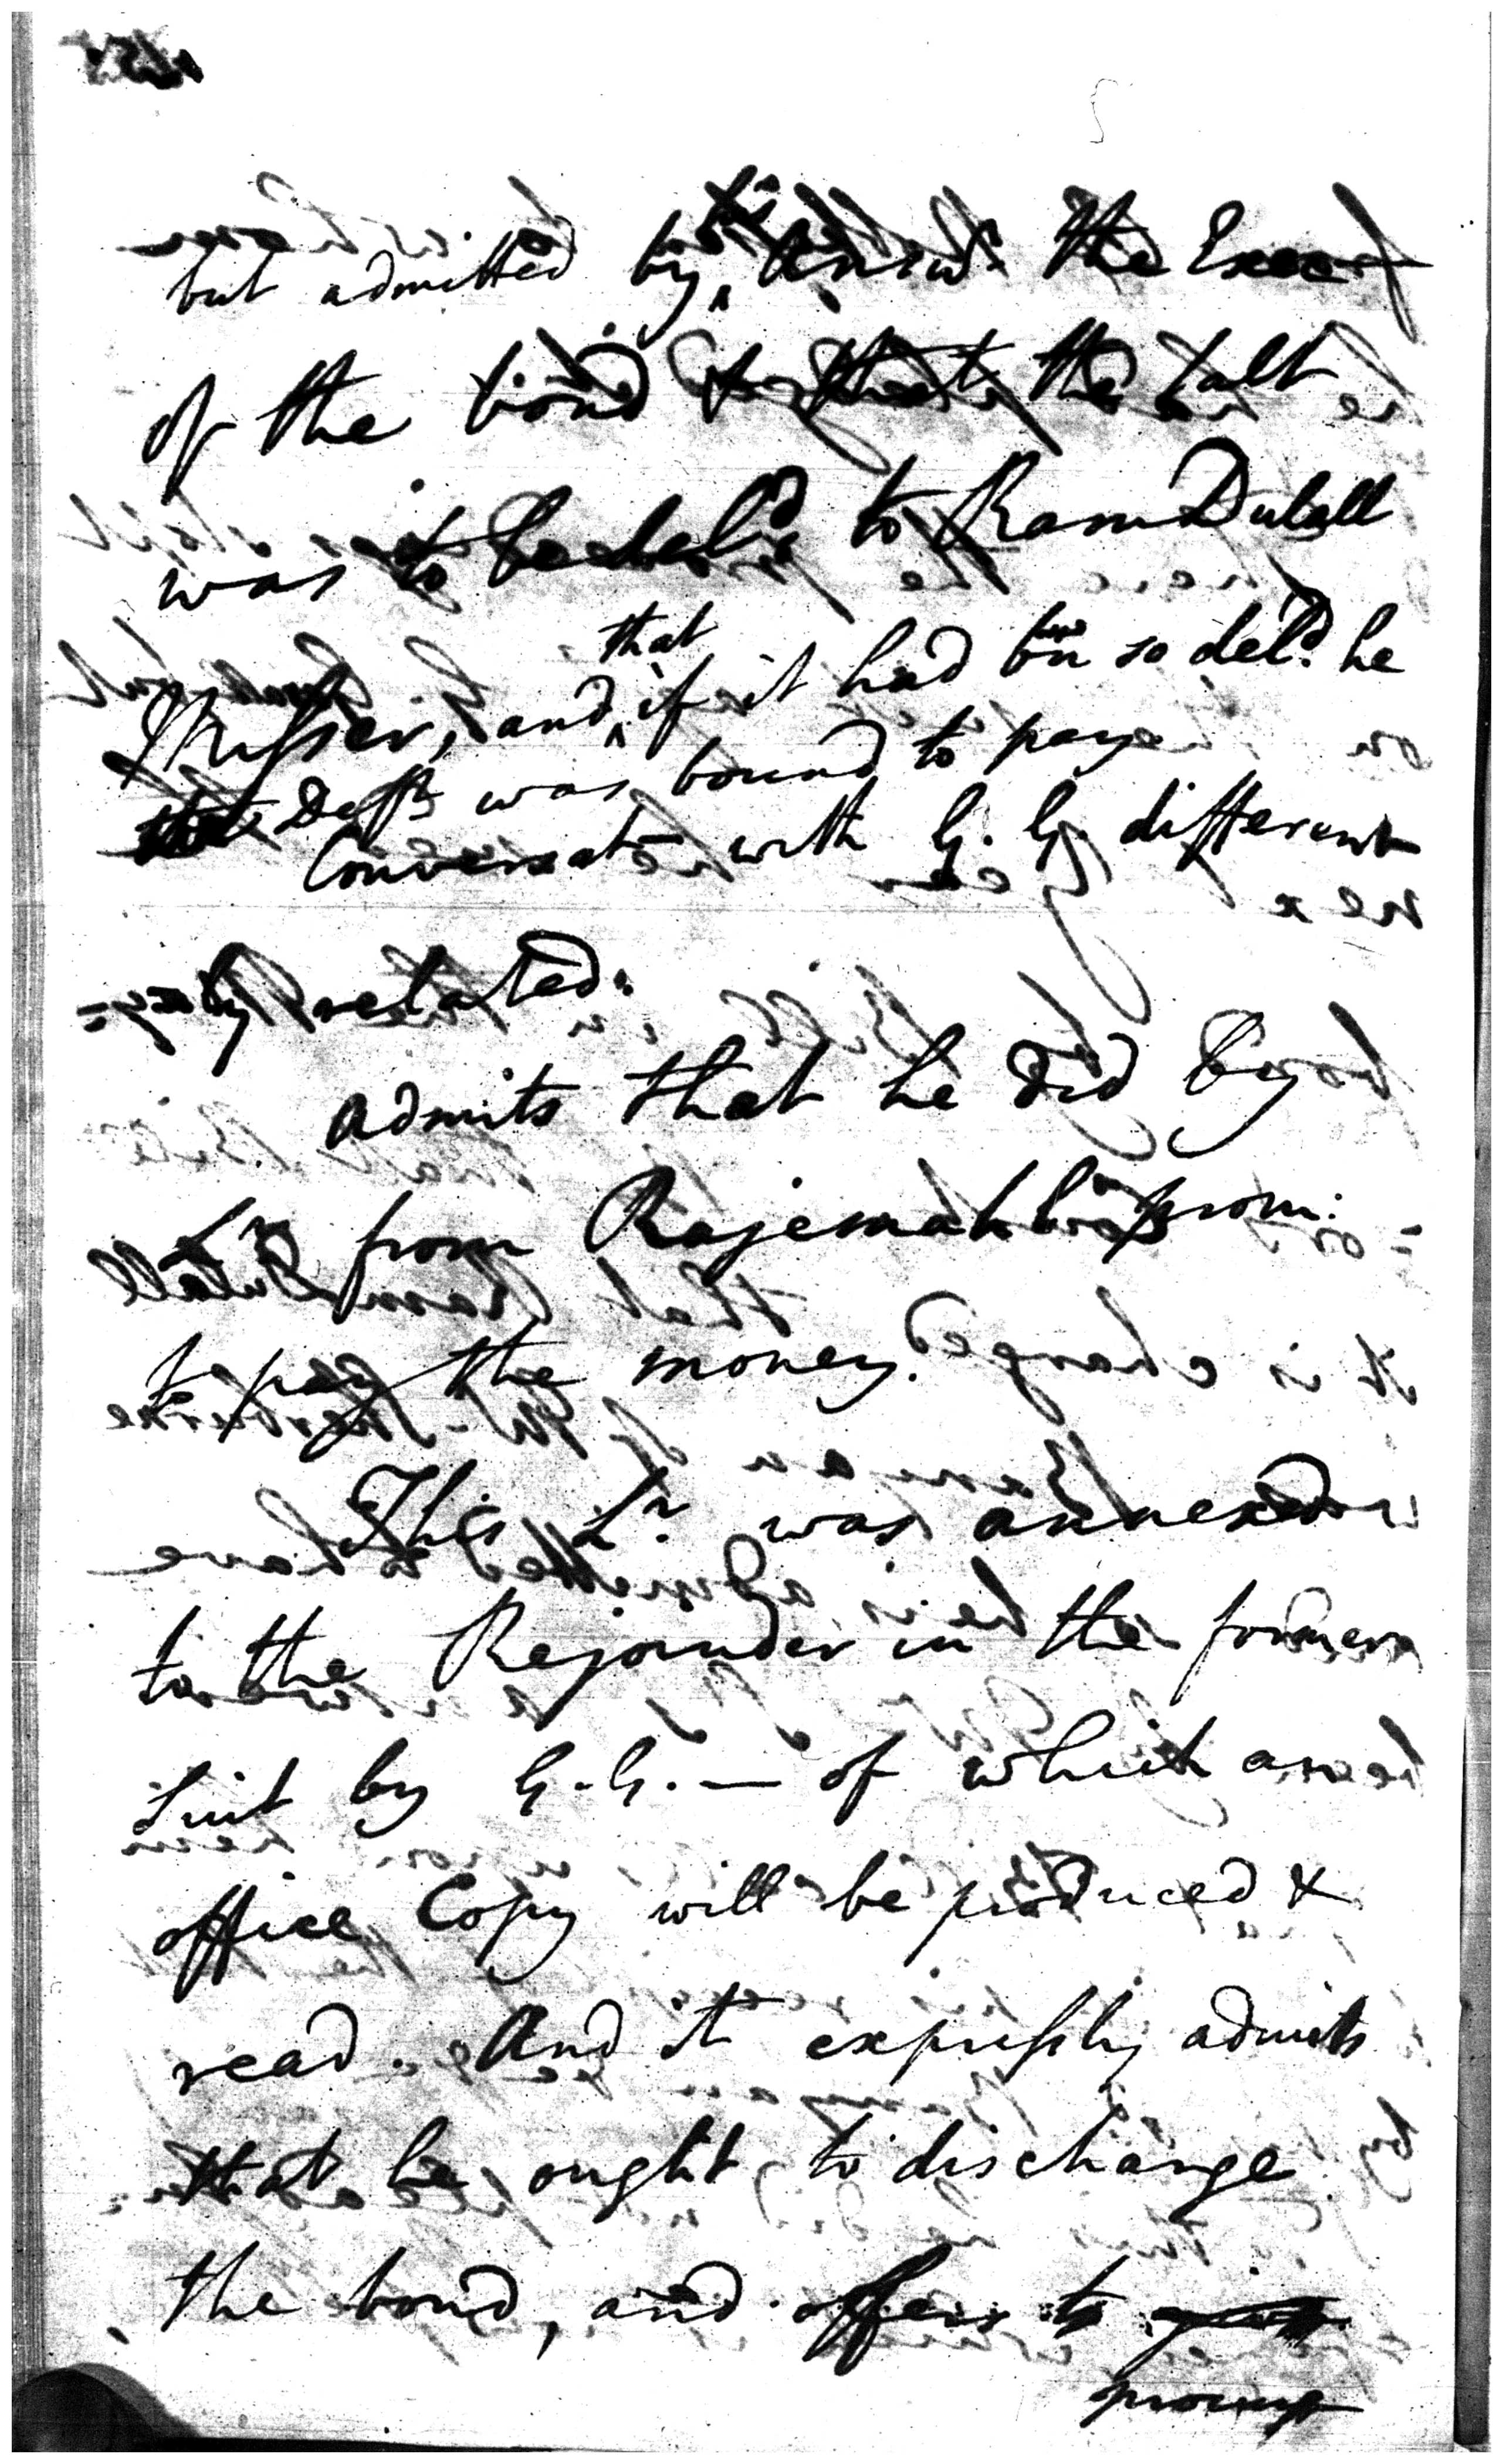 but admitted by his Answr. the Exec:
of the bond & that the salt
was to be deld. to Ram Dulall
Misser, and that if it had bn so deld. he
Deft was bound to pay
Conversatn with G. G. different
=ly related.
Admits that he did by
Lr. from Rajemahl prom:
to pay the money.
This Lr. was annexed
to the Rejoinder in the former
Suit by G. G. — of which an
office Copy will be produced &
read. And it expressly admits
that he ought to discharge
the bond, and offers to